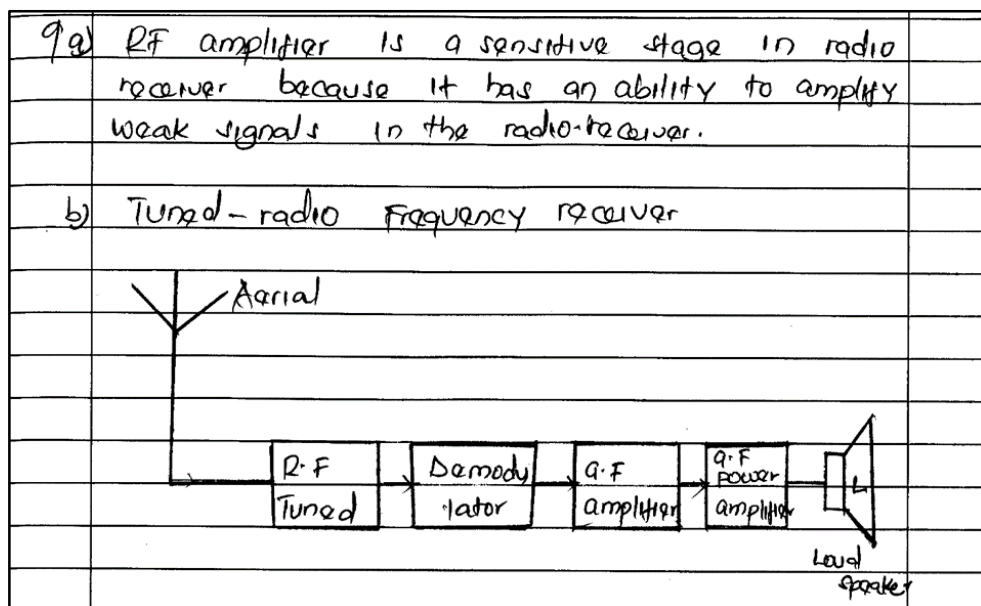 9 a) RF amplifier is a sensitive stage in radio
receiver because it has an ability to amplify
weak signals in the radio-receiver.
b) Tuned-radio Frequency receiver
Aerial
R.F
Tuned
Demodu
lator
a.F
amplifier
a.F
power
amplifier
L
Loud
speaker